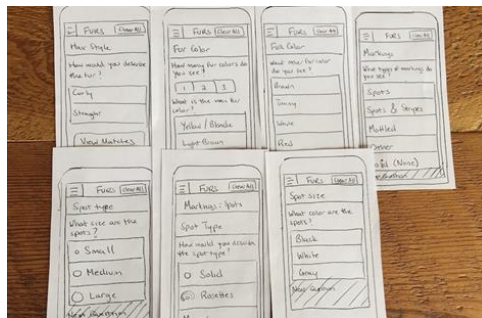 FURS Clear All
Hair Style
How would you describe
the fur?
Curly
Straight
View Matches
FURS Clear All
Fur Color
How many fur colors do
you see?
1 2 3
What is the main fur
color?
Yellow / Blonde
Light Brown
FURS Clear All
Fur Color
What main fur color
do you see?
Brown
Tawny
White
Red
FURS Clear All
Markings
What types of markings do
you see?
Spots
Spots & Stripes
Mottled
Other
(None)
FURS Clear All
Spot type
What size are the
spots?
Small
Medium
Large
Next Question
FURS Clear All
Markings: Spots
Spot Type
How would you describe
the spot type?
Solid
Rosettes
FURS Clear All
Spot Size
What color are the
spots?
Black
White
Gray
Next Question